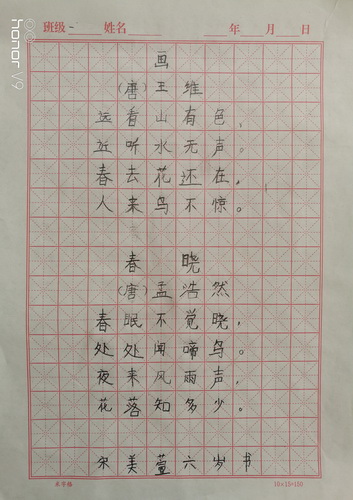 班级 姓名 年 月 日
画
(唐)王维
远看山有色,
近听水无声。
春去花还在,
人来鸟不惊。
春 晓
(唐)孟浩然
春眠不觉晓,
处处闻啼鸟。
夜来风雨声,
花落知多少。
美萱六岁书
米字格 10×15=150
honor V9